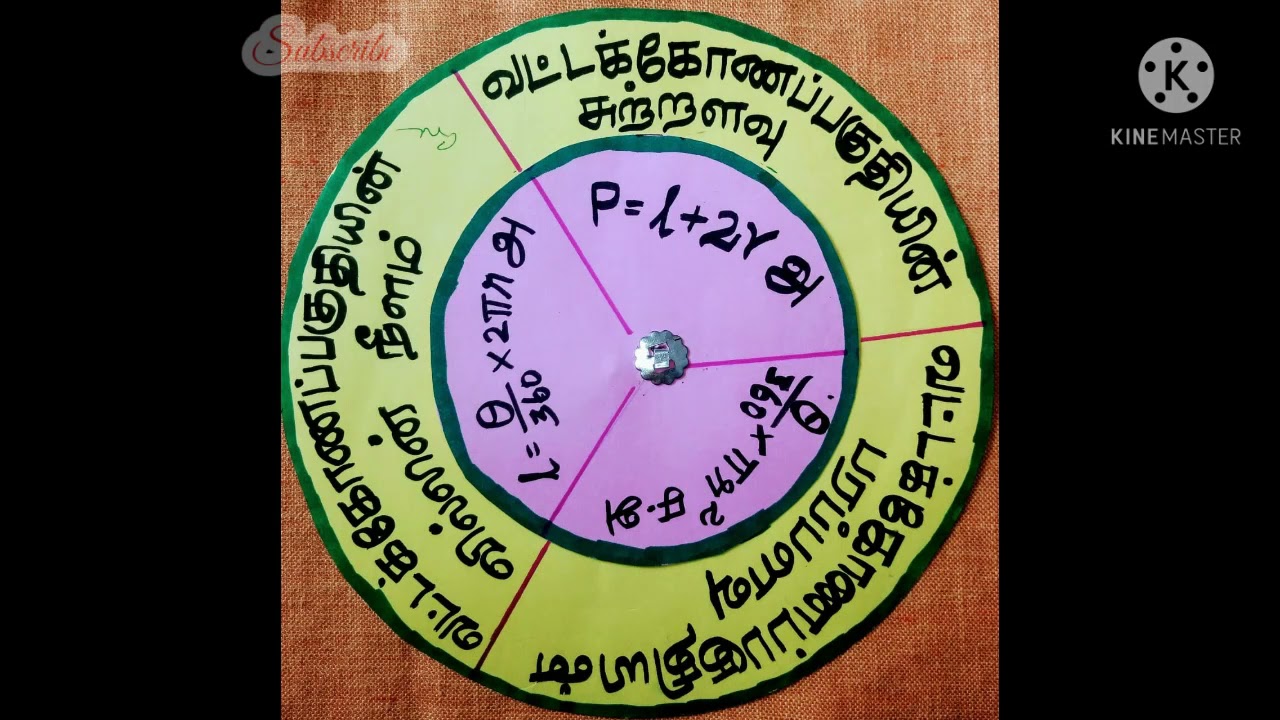 Subscribe
KINEMASTER
வட்டக்கோணப்பகுதியின்
சுற்றளவு
P = l + 2r அ
வட்டக்கோணப்பகுதியின்
பரப்பளவு
θ/360 × πr² ச.அ
வட்டக்கோணப்பகுதியின்
வில்லின் நீளம்
l = θ/360 × 2πr அ